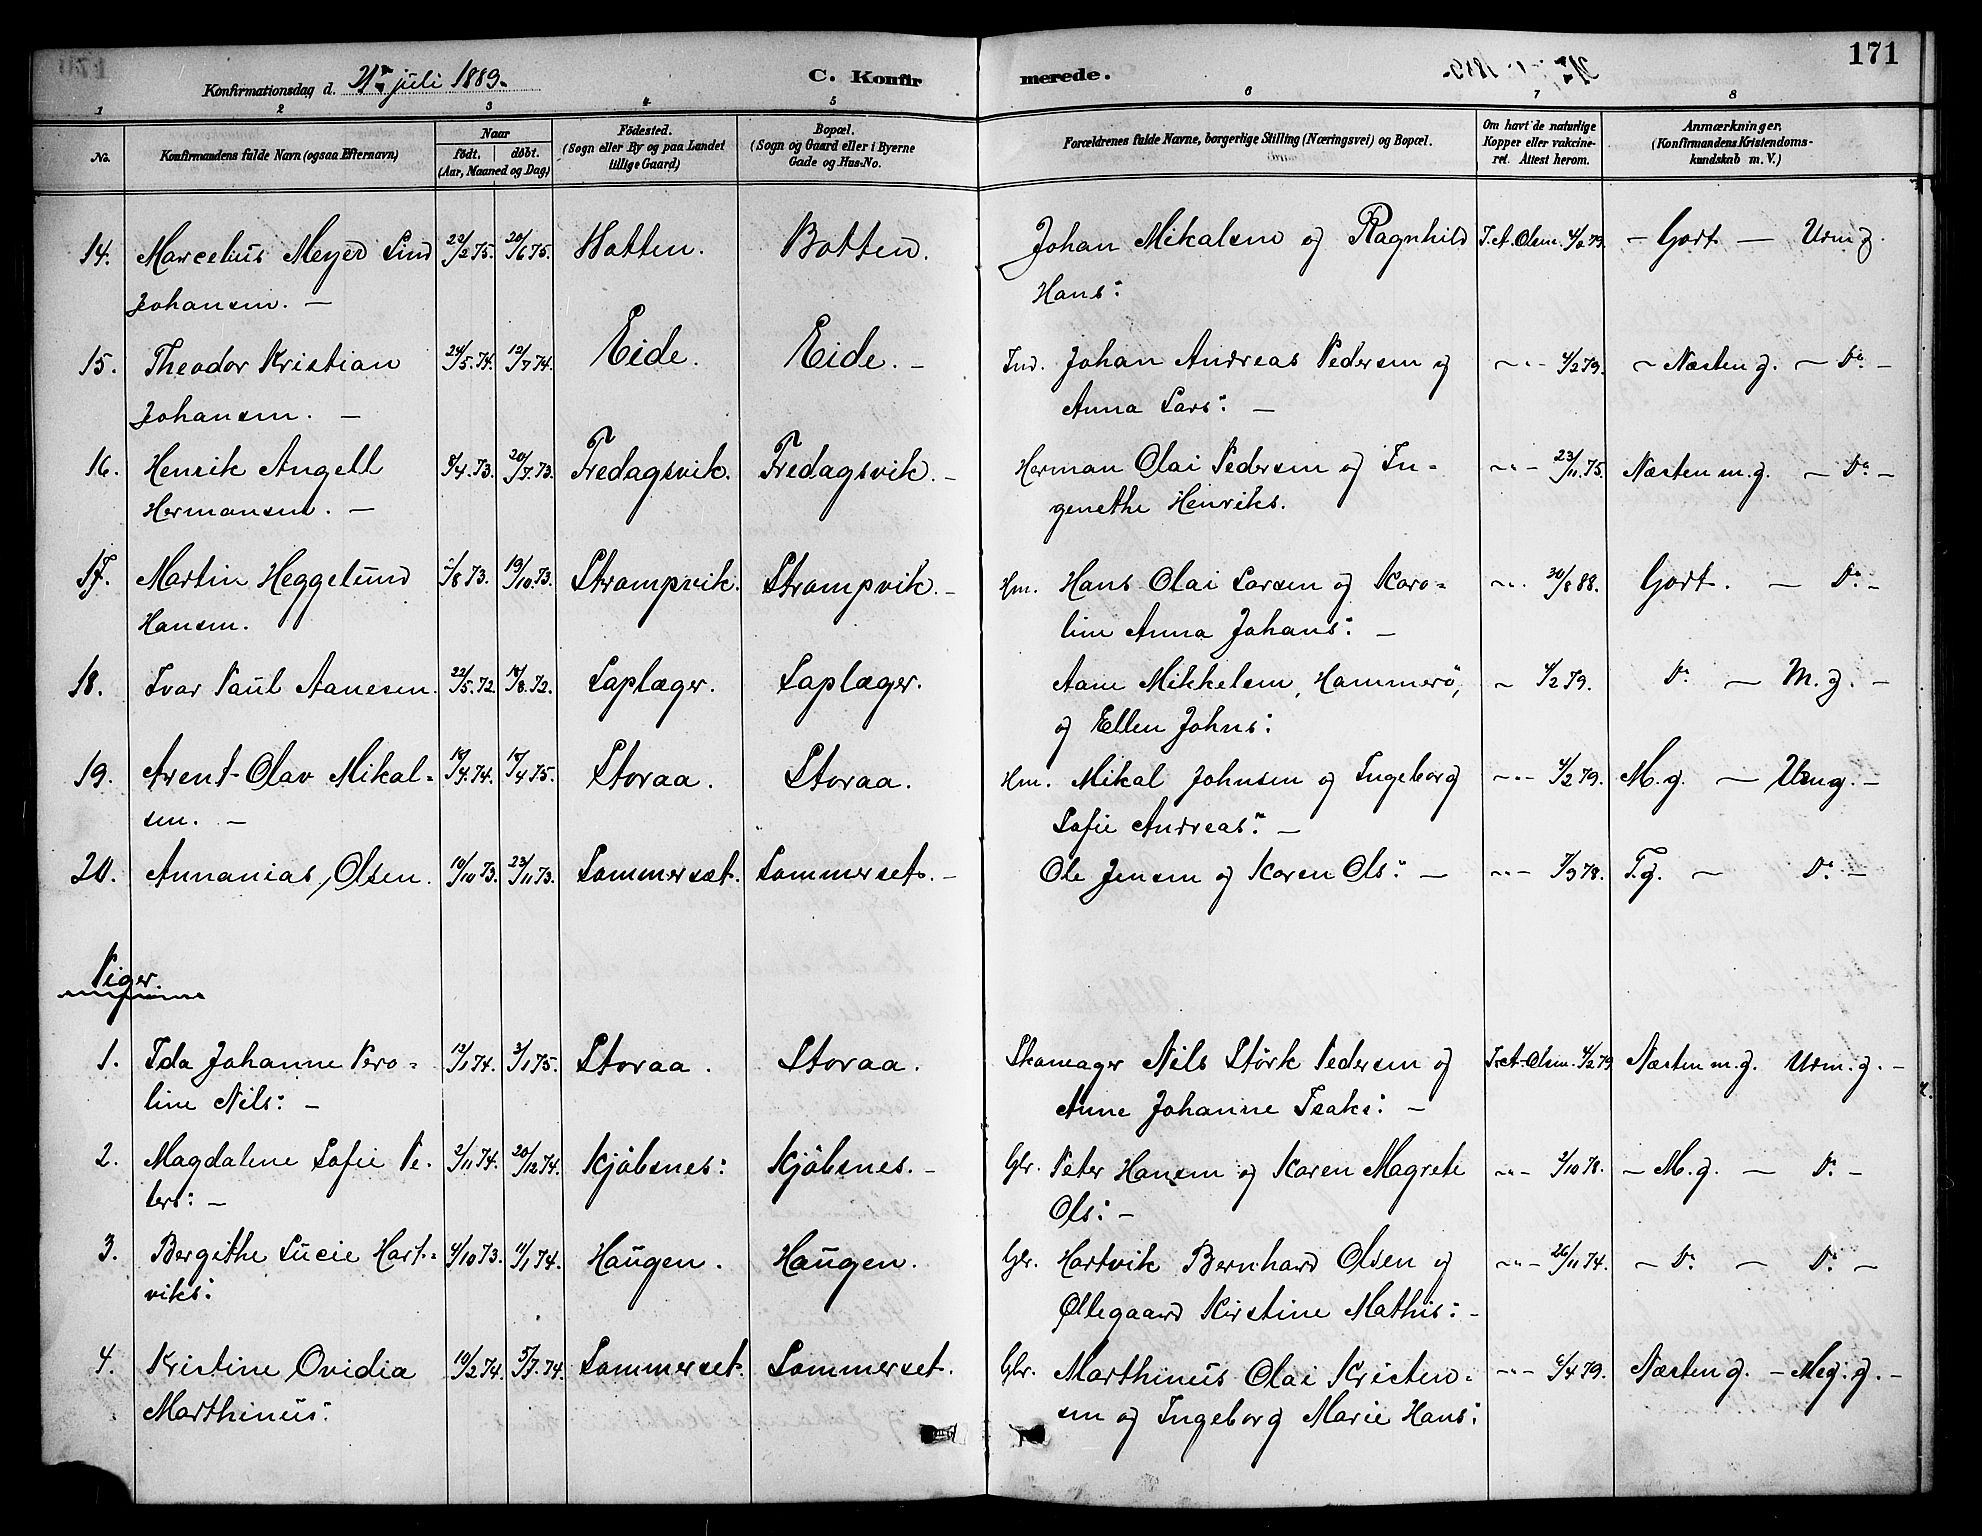 171
Konfirmationsdag d. 21de juli 1889. C. Konfirmerede.
1 2 3 4 5 6 7 8
No. Konfirmandens fulde Navn (ogsaa Efternavn) Naar født. døbt. (Aar, Maaned og Dag) Fødested. (Sogn eller By og paa Landet tillige Gaard) Bopæl. (Sogn og Gaard eller i Byerne Gade og Hus-No. Forældrenes fulde Navne, borgerlige Stilling (Næringsvei) og Bopæl. Om havt de naturlige Kopper eller vakcineret. Attest herom. Anmærkninger. (Konfirmandens Kristendomskundskab m. V.)
14. Marcelius Meyer Lind 22/2 75. 20/6 75. Botten. Johan Mikalsen og Ragnhild T. A. Olsen. 4/2 79. - Godt - Urm g.
Johansen. - Hans:
15. Theodor Kristian 24/5 74. 12/7 74. Eide. Eide. - Ind. Johan Andreas Pedersen og -"- 4/2 79. - Næsten g. - Do -
Johansen. - Anna Lars: -
16. Henrik Angell 8/4 73. 20/7 73. Fredagsvik. Fredagsvik. - Herman Olai Pedersen og In- -"- 23/11 75. Næsten m. g. - Do -
Hermansen. - genethe Henriks.
17. Martin Heggelund /8 73. 19/10 73. Strampvik. Strampvik. - Hm. Hans Olai Larsen og Karo- -"- 30/8 88. Godt. - Do -
Hansen. line Anna Johans: -
18. Ivar Paul Aanesen. 22/5 72. 18/8 72. Laplæger. Laplæger. Aane Mikkelsen, Hammerö, - 4/2 79. Do - M. g. -
og Ellen Johns:
19. Arent Olav Mikal- 4 74. 18/4 75. Storaa. Storaa. Hm. Mikal Johnsen og Ingeborg -"- 4/2 79. M. g. - Urm g. -
sen. - Sofie Andreas: -
20. Annanias Olsen. 10/10 73. 23/11 73. Sommerset. Sommerset. - Ole Jensen og Karen Ols: - -"- 7/3 78. T. g. - Do -
Piger.
1. Ida Johanne Pero- 12/1 74. 3/1 75. Storaa. Storaa. Skomager Nils Störk Pedersen og T. A. Olsen. 4/2 79 Næsten m. g. Urm. g. -
line Nils: - Anne Johanne Isaks: -
2. Magdalene Sofie Pe- 2/11 74. 20/12 74. Kjöbsnes: Kjöbsnes. - Gbr. Peter Hansen og Karen Magrete -"- 3/10 78. - M. g. - Do -
ters: - Ols: -
3. Bergithe Lucie Hart- 4/10 73. 11/1 74. Haugen. Haugen. Gbr. Hartvik Bernhard Olsen og -"- 26/11 74. - Do - Do -
viks: Ollegaard Kirstine Mathis: -
4. Kristine Ovidia 10/2 74. 5/7 74. Sommerset. Sommerset. Gbr. Marthinus Olai Kristen- -"- 6/4 79. Næsten g. - Meg: g. -
Marthinus: sen og Ingeborg Marie Hans: